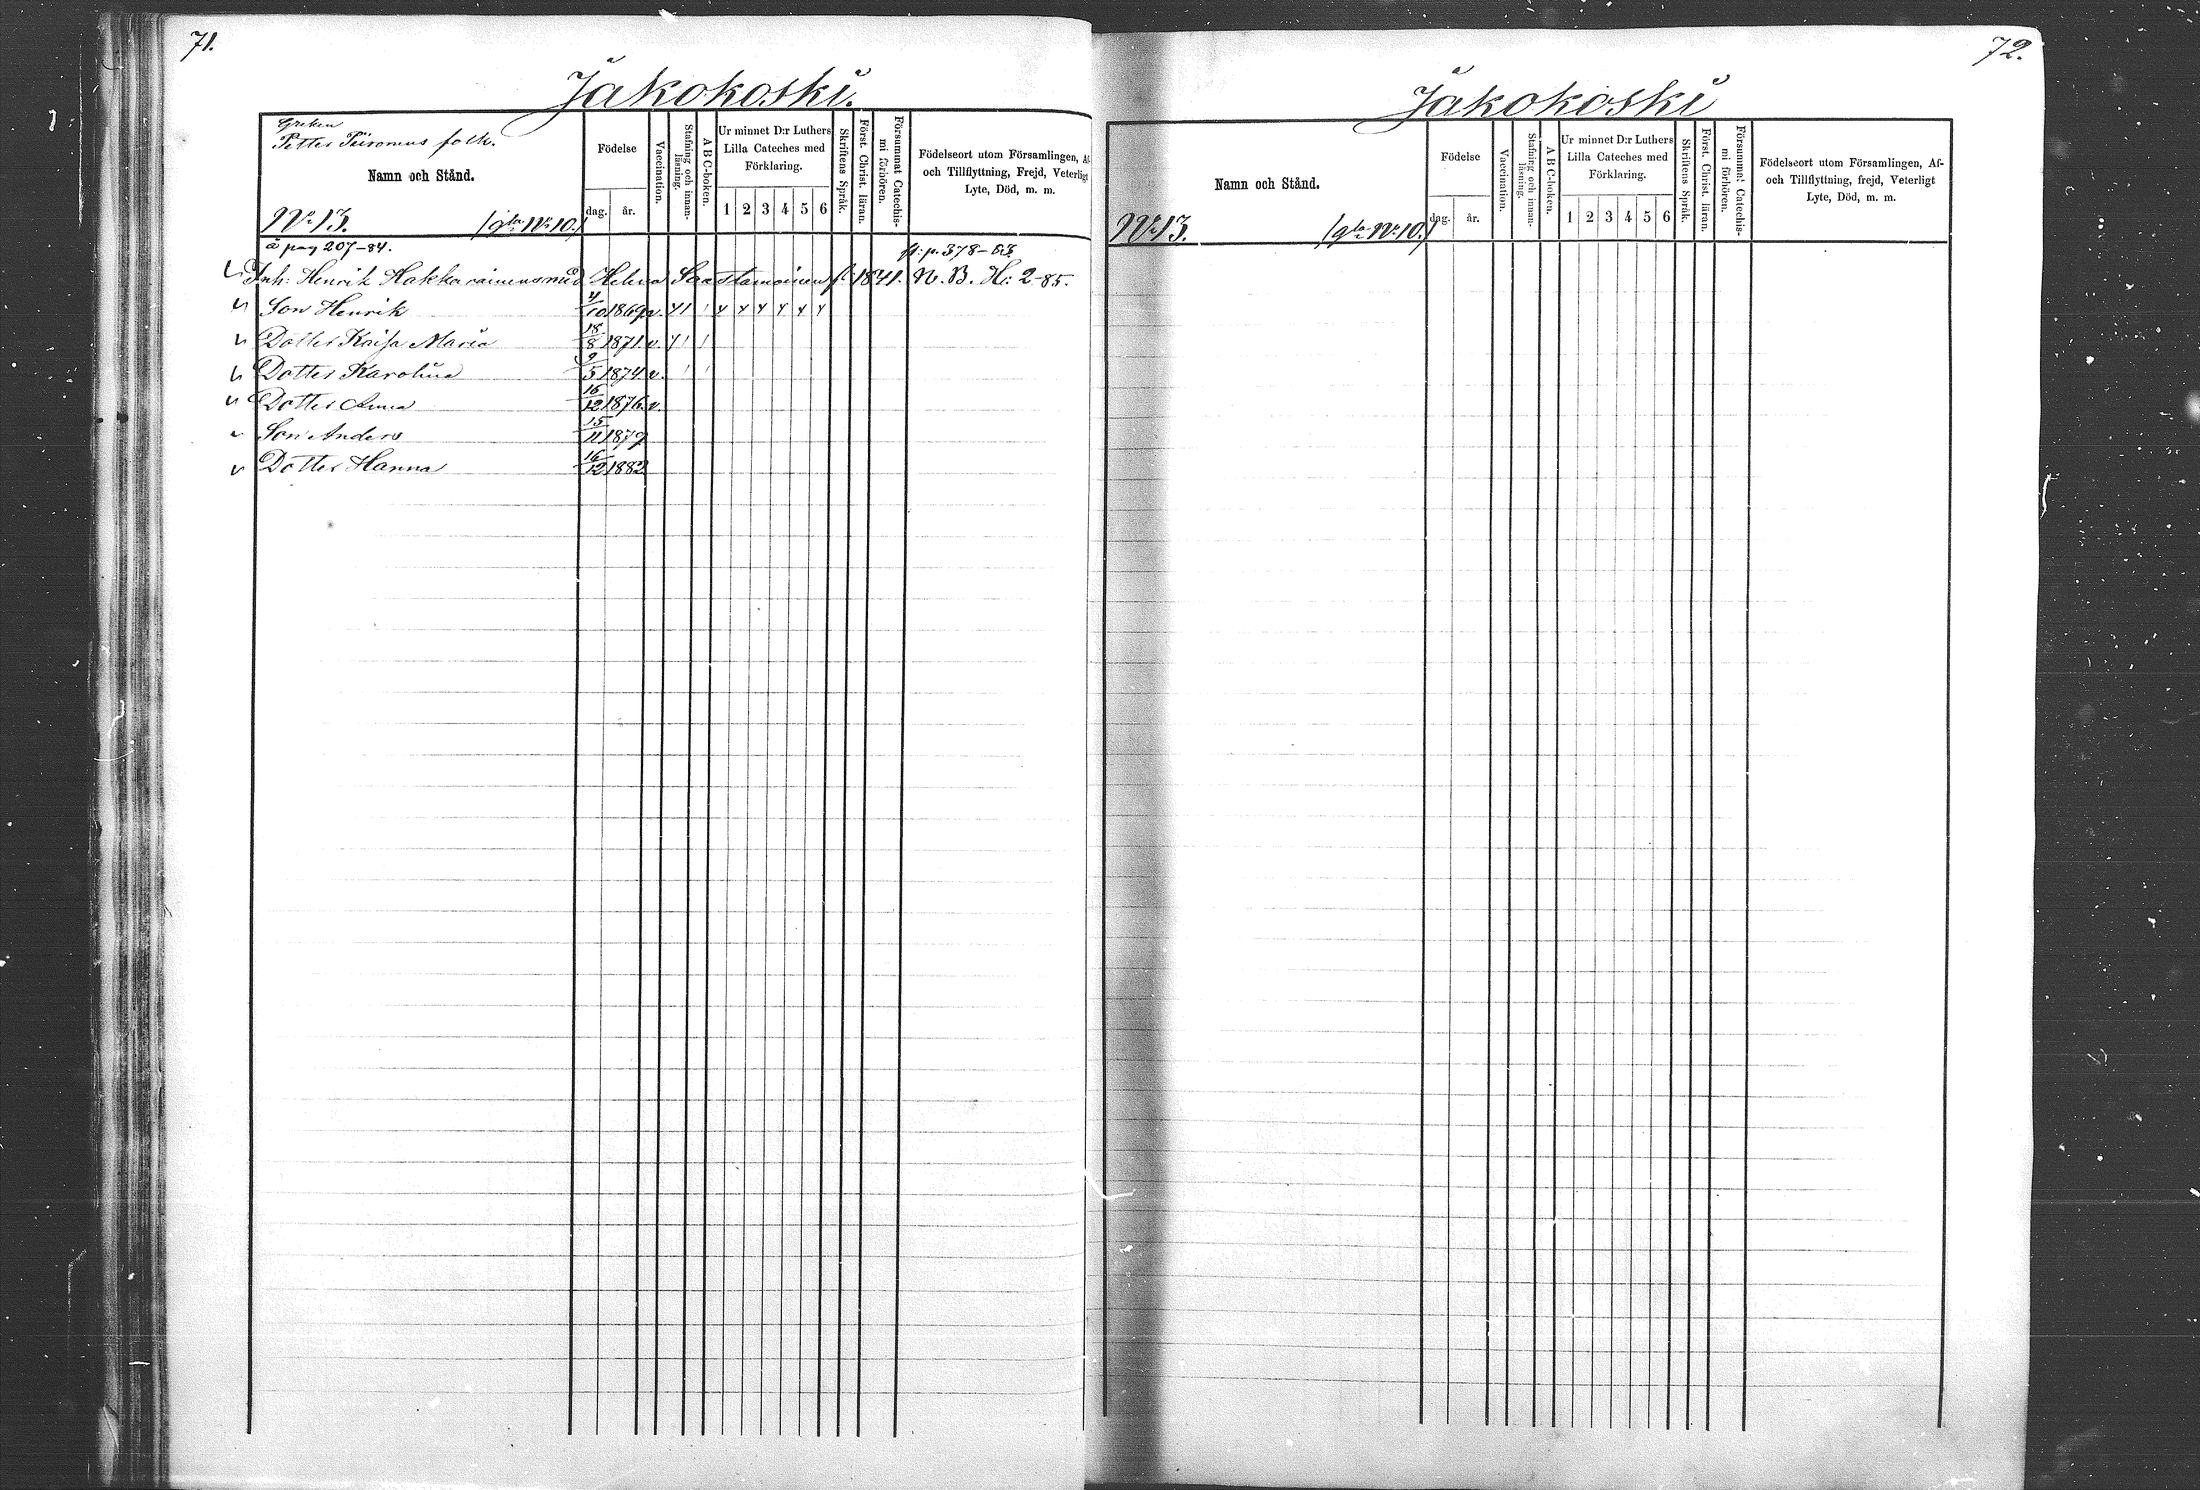 71.
Jakokoski.
Greken
Petter Piironens folk.
Namn och Stånd.
Födelse
dag. år.
Vaccination.
Stafning och innanläsning.
A B C-boken.
Ur minnet D:r Luthers
Lilla Cateches med
Förklaring.
1 2 3 4 5 6
Skriftens Språk.
Först. Christ. läran.
Försummat Catechismi förhören.
Födelseort utom Församlingen, Af-
och Tillflyttning, Frejd, Veterligt
Lyte, Död, m. m.
No 13. /gla No 10./
å pag 207-84. fl. p. 378-83.
Inh: Henrik Hakkarainens med Helena Saastamoinen f. 1841. N. B. H: 2-85.
Son Henrik 4/10 1869 v.
Dotter Kaisa Maria 18/8 1871 v.
Dotter Karolina 9/5 1874 v.
Dotter Anna 16/12 1876 v.
Son Anders 15/11 1879
Dotter Hanna 16/12 1882
72.
Jakokoski
Namn och Stånd.
Födelse
dag. år.
Vaccination.
Stafning och innanläsning.
A B C-boken.
Ur minnet D:r Luthers
Lilla Cateches med
Förklaring.
1 2 3 4 5 6
Skriftens Språk.
Först. Christ. läran.
Försummat Catechismi förhören.
Födelseort utom Församlingen, Af-
och Tillflyttning, frejd, Veterligt
Lyte, Död, m. m.
No 13. /gla No 10./